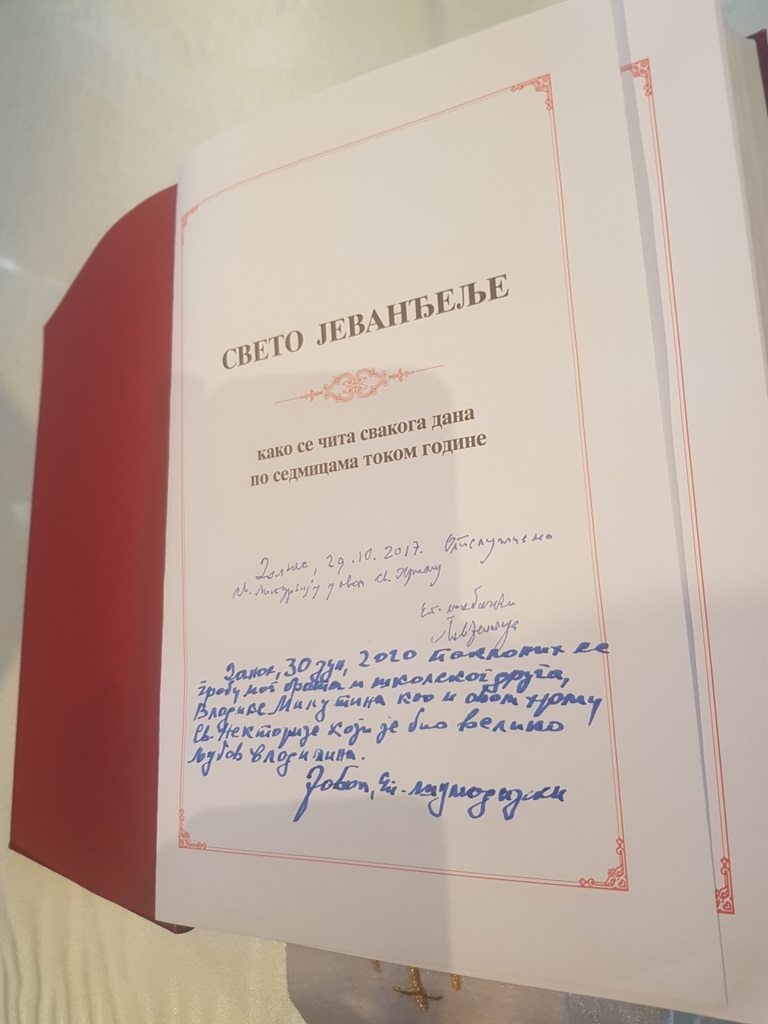 СВЕТО ЈЕВАНЂЕЉЕ
како се чита свакога дана
по седмицама током године
Данас, 29.10.2017. Отслужено
св. литургију у овом св. Храму
Еп. шабачки
Лаврентије
Данас, 30 јун, 2020 поклоних се
гробу мог брата и школског друга,
Владике Милутина као и овом храму
Св. Нектарије који је био велико
љубов владичина.
Јован, Еп. шумадијски